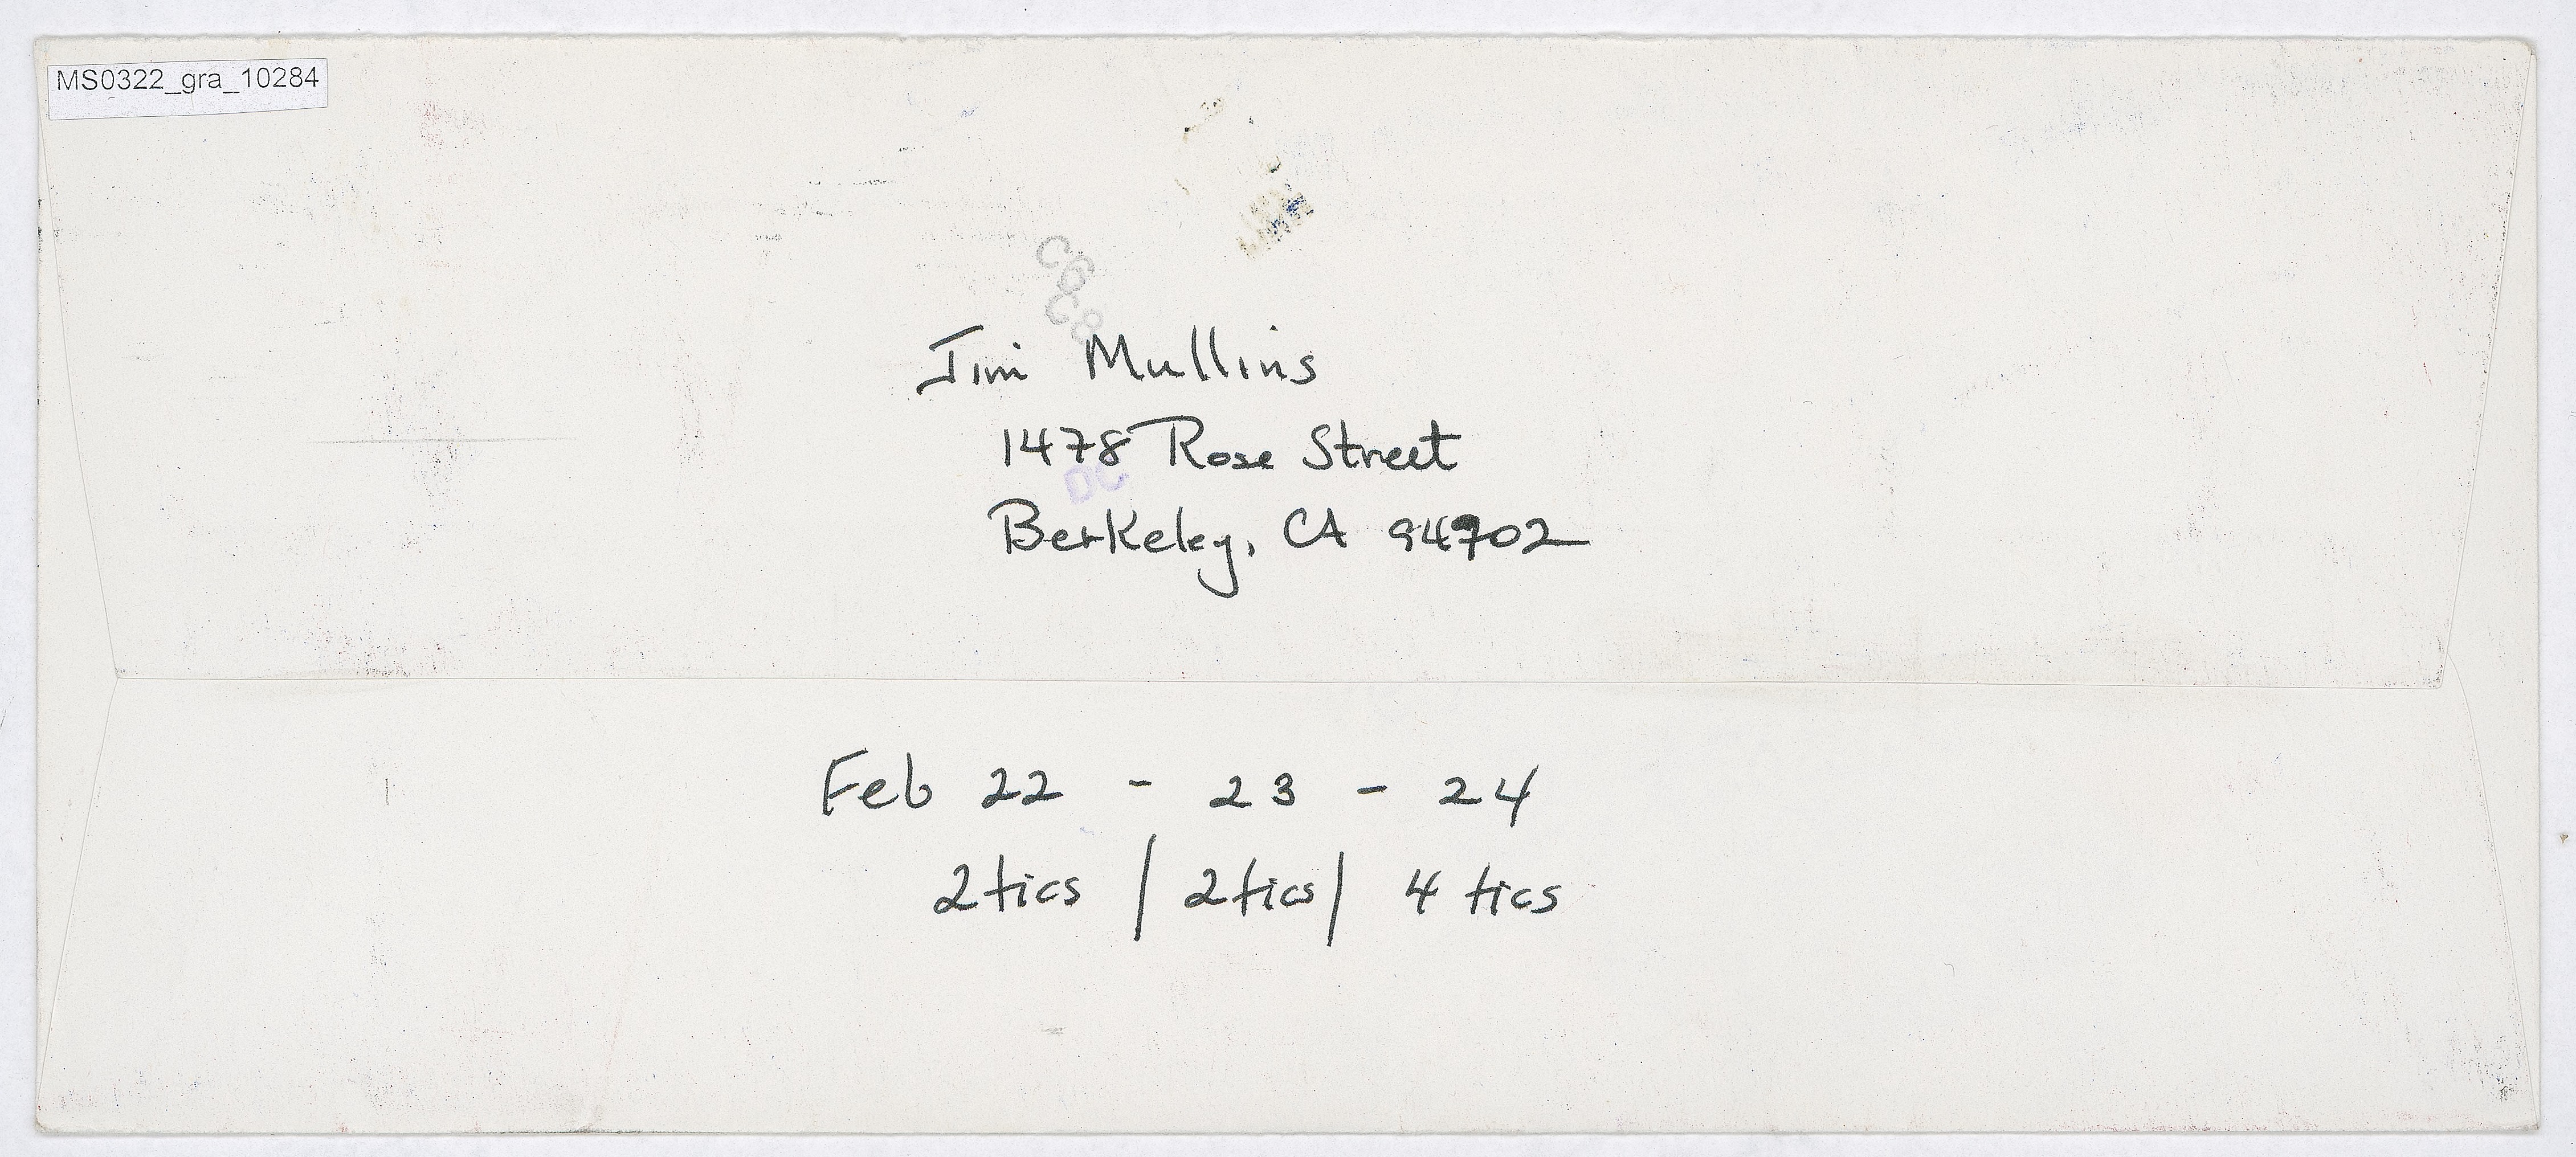 MS0322_gra_10284
C6
C8
Jim Mullins
1478 Rose Street
DC
Berkeley, CA 94702
Feb 22 - 23 - 24
2 tics / 2 tics / 4 tics